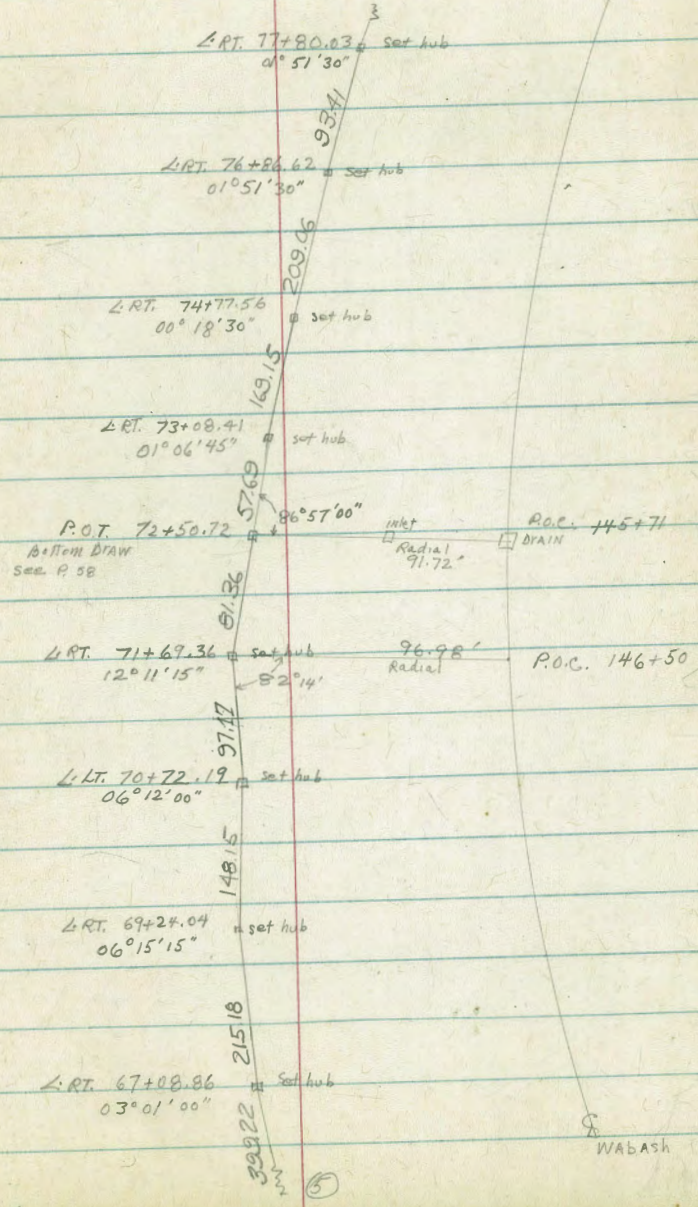 ∠ RT. 77+80.03 set hub
01° 51' 30"
93.41
∠ RT. 76+86.62 set hub
01° 51' 30"
209.06
∠ RT. 74+77.56 set hub
00° 18' 30"
169.15
∠ RT. 73+08.41 set hub
01° 06' 45"
57.69
86° 57' 00"
P.O.T. 72+50.72
Bottom DRAW
See P. 58
Inlet
Radial
91.72'
P.O.C. 145+71
DRAIN
81.36
∠ RT. 71+69.36 set hub
12° 11' 15"
82° 14'
96.98'
Radial
P.O.C. 146+50
97.17
∠ LT. 70+72.19 set hub
06° 12' 00"
148.15
∠ RT. 69+24.04 set hub
06° 15' 15"
215.18
∠ RT. 67+08.86 Set hub
03° 01' 00"
399.22
5
℄
WAbAsh